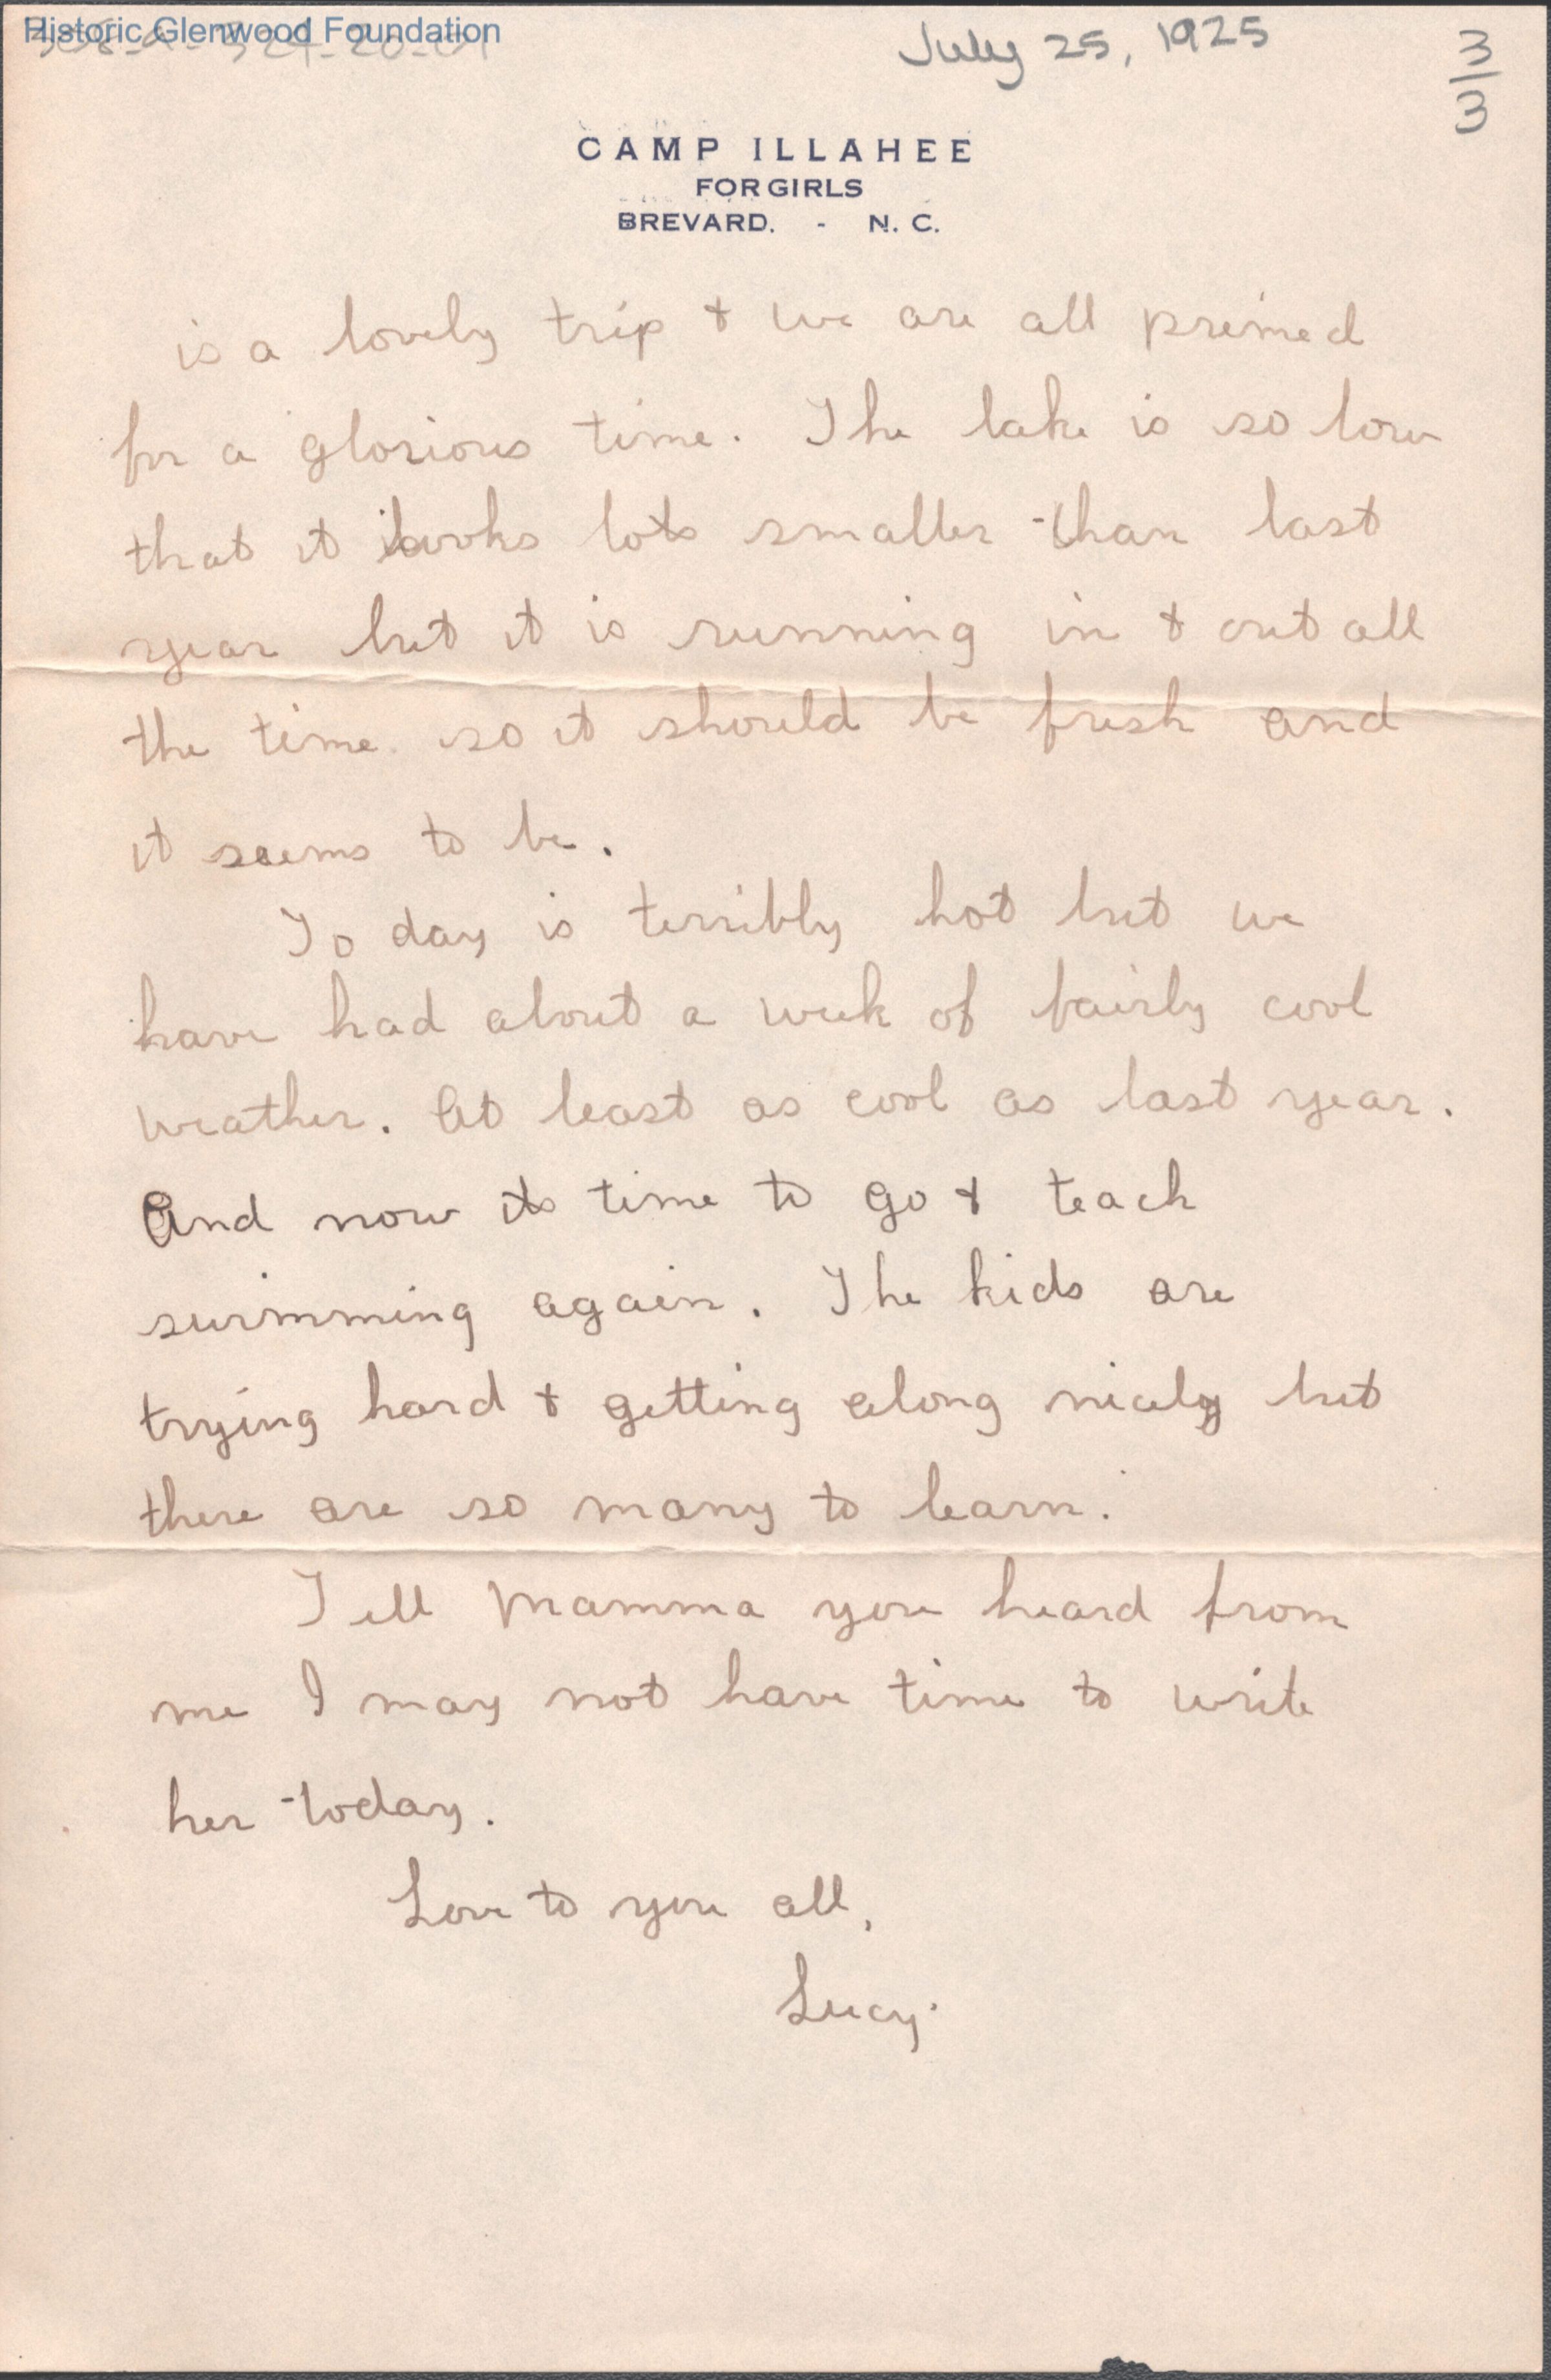 Historic Glenwood Foundation
July 25, 1925
3
3
CAMP ILLAHEE
FOR GIRLS
BREVARD. - N. C.
is a lovely trip & we are all primed
for a glorious time. The lake is so low
that it looks lots smaller than last
year but it is running in & out all
the time so it should be fresh and
it seems to be.
To day is terribly hot but we
have had about a week of fairly cool
weather. At least as cool as last year.
And now its time to go & teach
swimming again. The kids are
trying hard & getting along nicely but
there are so many to learn.
Tell Mamma you heard from
me I may not have time to write
her today.
Love to you all,
Lucy.